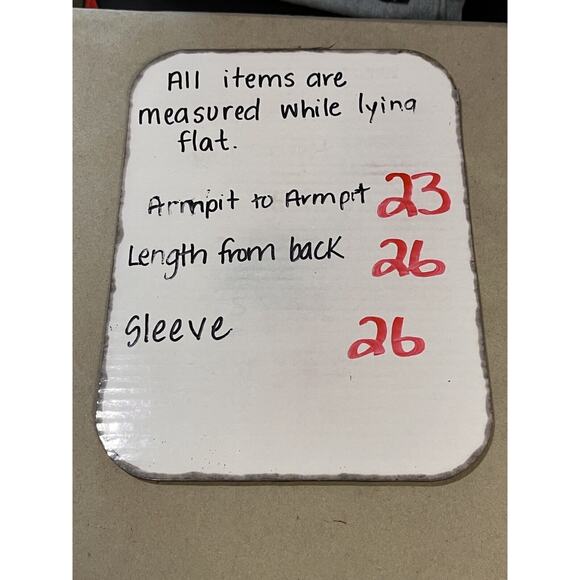 All items are
measured while lying
flat.
Armpit to Armpit 23
Length from back 26
Sleeve 26